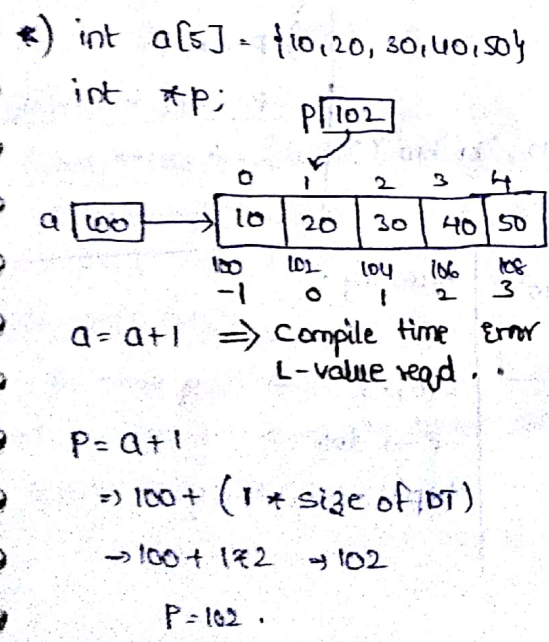 *) int a[5] = {10,20, 30,40,50}
int *p;
p 102
0 1 2 3 4
a 100 10 20 30 40 50
100 102 104 106 108
-1 0 1 2 3
a = a+1 => Compile time Error
L-value reqd . .
P = a+1
=> 100 + (1 * size of DT)
→ 100 + 1*2 → 102
P = 102 .